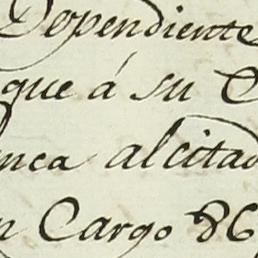 Dependiente
que á su C
nca alcitad
n Cargo 86